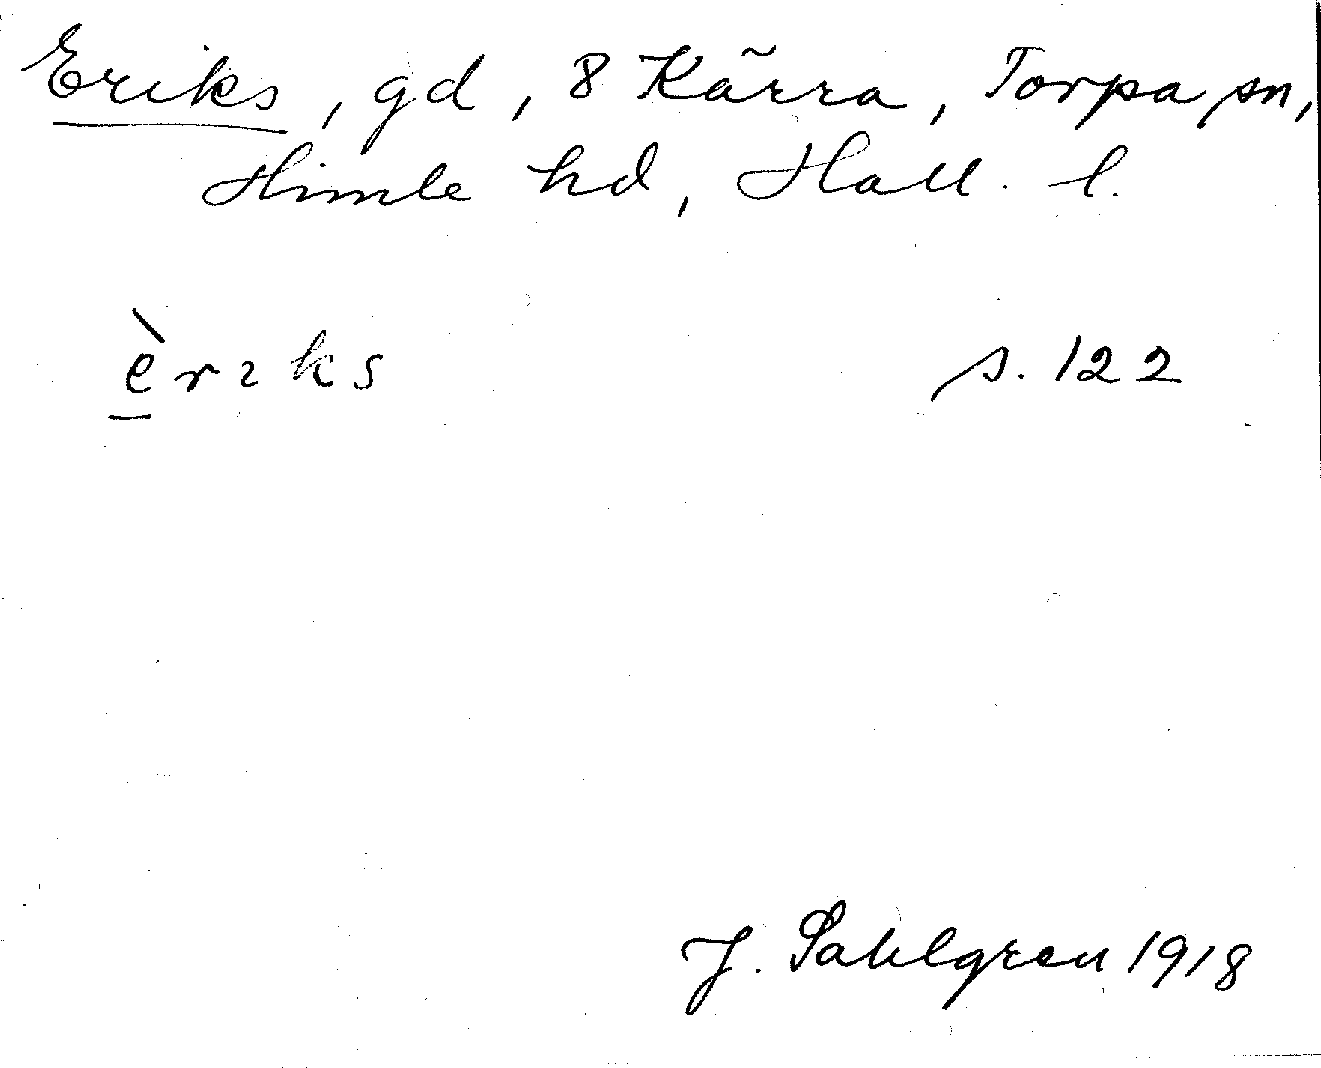 Eriks, gd, 8 Kärra, Torpa sn,
Himle hd, Hall. l.
èrıks s. 122
J. Sahlgren 1918